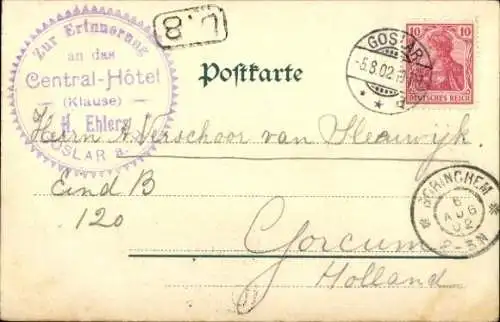 Zur Erinnerung
an das
Central-Hôtel
(Klause)
H. Ehlers
GOSLAR a.
L. 8
Postkarte
GOSLAR
-5.8.02
10 10
DEUTSCHES REICH
Herrn A. Verschoor van
Eind B
120
Gorcum
Holland
GORINCHEM
6
AUG
02